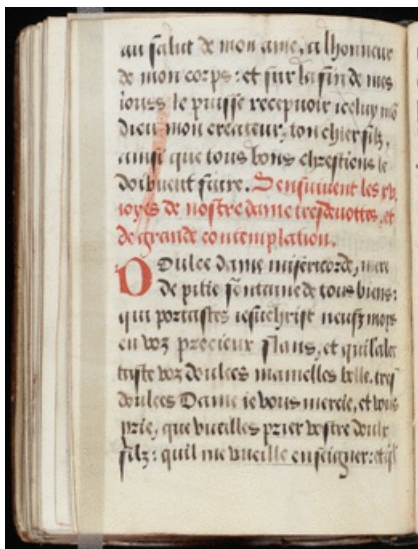 au salut de mon ame, a lhonneur
de mon corps: et sur la fin de mes
iours le puisse recepuoir iceluy mō
dieu mon createur, ton chier filz,
ainsi que tous bons chrestiens le
doibuent faire. Sensuiuent les xv
ioyes de nostre dame tresdeuottes, et
de grande contemplation.
O Dulce dame misericorde, mere
de pitie fontaine de tous biens:
qui portastes iesuchrist neufz moys
en voz precieux flans, et qui
voz doulces mamelles tres
doulces Dame ie vous mercie, et vous
prie, que vueilles prier vostre doulx
filz: quil me vueille enseigner: